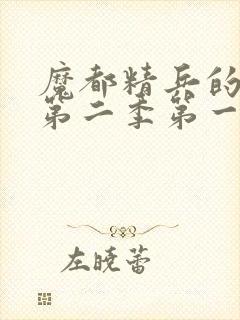 魔都精兵的
第二季第一
左晓蕾